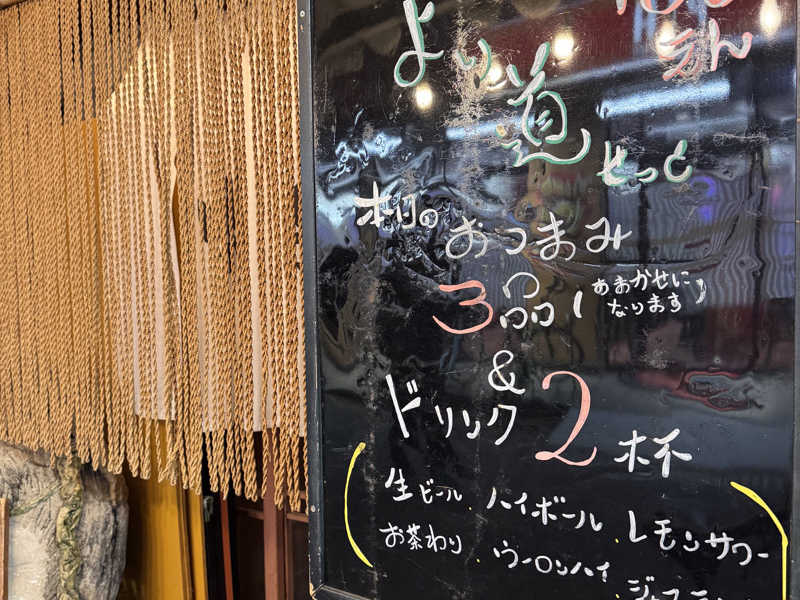 より道せっと
本日のおつまみ
3品(おまかせに
なります)
&
ドリンク2杯
(生ビール.ハイボール.レモンサワー
お茶わり.ウーロンハイ